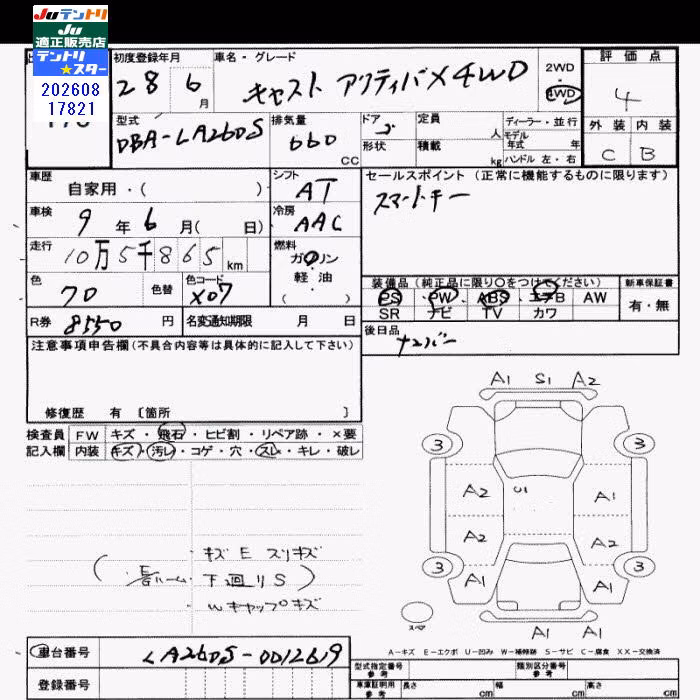 Juテントリ
Ju
適正販売店
テントリ
★スター
202608
17821
初度登録年月
28 6月
車名・グレード
キャスト アクティバX4WD
2WD
・
4WD
評価点
4
外装 内装
C B
型式
DBA-LA260S
排気量
660
CC
ドア
5
形状
定員
人
積載
kg
ディーラー・並行
モデル
年式 年
ハンドル 左・右
車歴
自家用・( )
シフト
AT
セールスポイント(正常に機能するものに限ります)
スマートキー
車検
9年6月( 日)
冷房
AAC
走行
10万5千865km
燃料
ガソリン
・
軽油
( )
色
70
色替
色コード
X07
装備品(純正品に限り○をつけてください)
新車保証書
PS・PW・ABS・エアB AW
SR ナビ TV カワ
有・無
R券 8550円
名変通知期限 月 日
後日品
ナンバー
注意事項申告欄(不具合内容等は具体的に記入して下さい)
修復歴 有 〔箇所 〕
検査員
記入欄
FW キズ・飛石・ヒビ割・リペア跡・×要
内装 キズ・汚レ・コゲ・穴・スレ・キレ・破レ
・キズE スリキズ
下廻りS
・Wキャップキズ
A1 S1 A2
3 3
A2 U1 A1
A2 A2
3 3
A1 A1
スペア
A1 A1
A-キズ E-エクボ U-凹み W-補修跡 S-サビ C-腐食 XX-交換済
車台番号
LA260S-0012619
登録番号
型式指定番号
参考
類別区分番号
参考
車庫証明用
参考
長さ cm
幅 cm
高さ cm